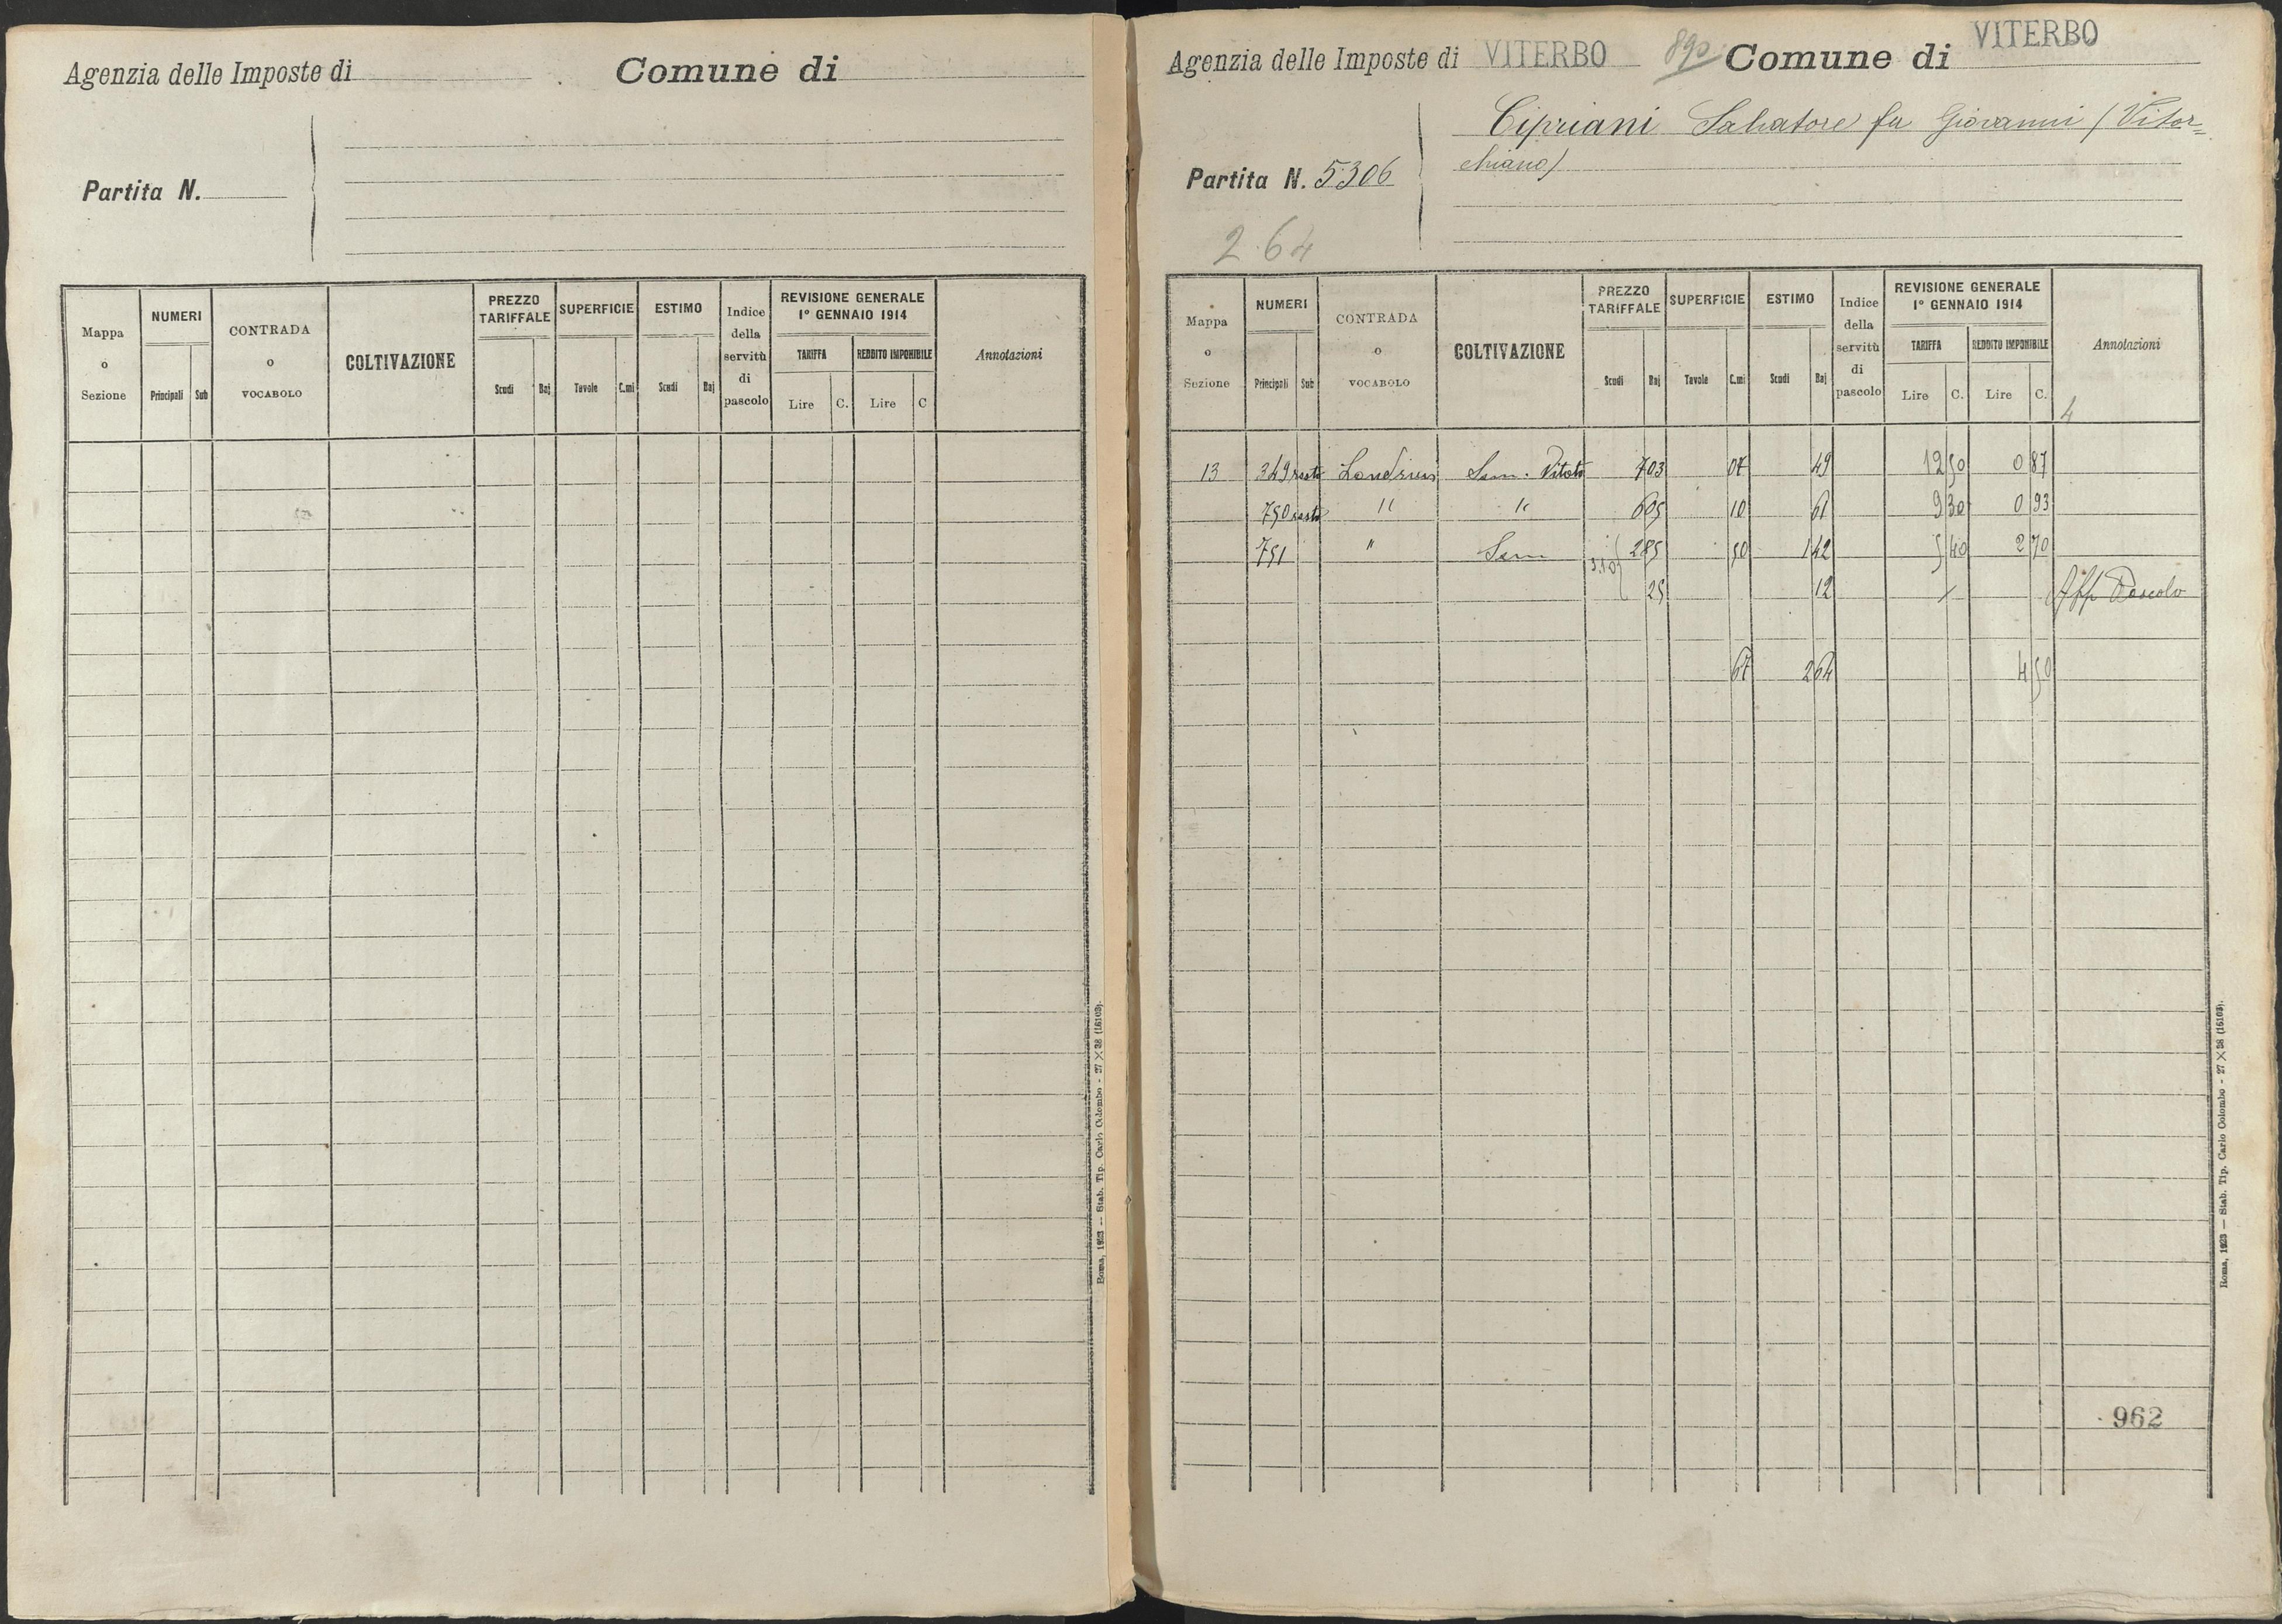 Agenzia delle Imposte di Comune di
Partita N.
Mappa o Sezione
NUMERI
Principali Sub
CONTRADA o VOCABOLO
COLTIVAZIONE
PREZZO TARIFFALE
Scudi Baj
SUPERFICIE
Tavole C.mi
ESTIMO
Scudi Baj
Indice della servitù di pascolo
REVISIONE GENERALE
1° GENNAIO 1914
TARIFFA REDDITO IMPONIBILE
Lire C. Lire C
Annotazioni
Roma, 1923 — Stab. Tip. Carlo Colombo - 27 × 38 (16103).
Agenzia delle Imposte di VITERBO 890 Comune di VITERBO
Cipriani Salvatore fu Giovanni (Vitor=
chiano)
Partita N. 5306
2.64
Mappa o Sezione
NUMERI
Principali Sub
CONTRADA o VOCABOLO
COLTIVAZIONE
PREZZO TARIFFALE
Scudi Baj
SUPERFICIE
Tavole C.mi
ESTIMO
Scudi Baj
Indice della servitù di pascolo
REVISIONE GENERALE
1° GENNAIO 1914
TARIFFA REDDITO IMPONIBILE
Lire C. Lire C.
Annotazioni
4
13 349 resto Sem. Vitato 7 03 07 49 12 50 0 87
750 resto " " 6 05 10 61 9 30 0 93
751 " Sem 3.10 2 85 50 1 42 5 40 2 70
25 12 / Aff Pascolo
67 2 64 4 50
962
Roma, 1923 — Stab. Tip. Carlo Colombo - 27 × 38 (16103).